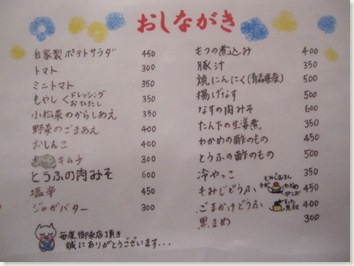 おしながき
自家製ポテトサラダ 450
トマト 300
ミニトマト 350
もやし ドレッシング おひたし 350
小松菜のからしあえ 350
野菜のごまあえ 400
おしんこ 400
キムチ 300
とうふの肉みそ 600
塩辛 450
ジャガバター 300
毎度御来店頂き
誠にありがとうございます...
もつの煮込み 400
豚汁 350
焼にんにく(青森県産) 500
揚げなす 500
なすの肉みそ 600
たん下の生姜煮 350
わかめの酢のもの 500
とうふの酢のもの 500
冷やっこ 350
もみじどうふ 450
ごまかけどうふ 400
黒まめ 300